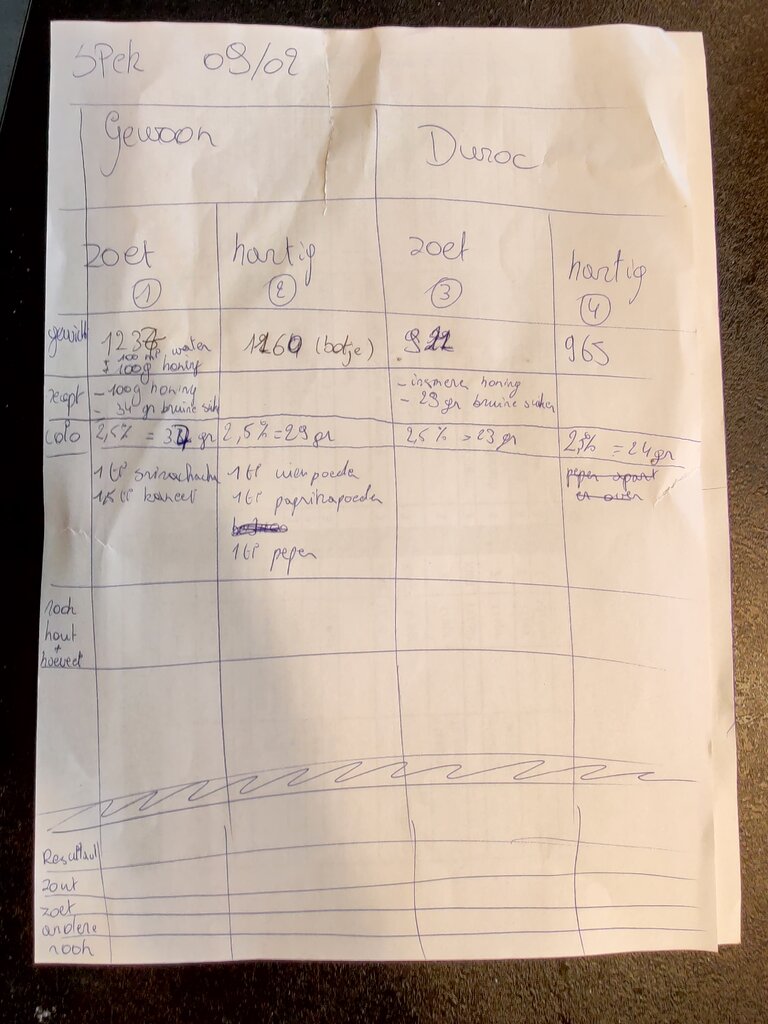 SPek 09/02
Gewoon Duroc
zoet hartig zoet hartig
1 2 3 4
gewicht 1237 1160 (botje) 922 965
+ 100 ml water
+ 100g honing
recept - 100g honing - insmeren honing
- 34 gr bruine suik - 23 gr bruine suiker
colo 2,5% = 32 gr 2,5% = 29 gr 2,5% = 23 gr 2,5% = 24 gr
1 tl sriracha 1 tl uienpoeder peper apart
1 tl kaneel 1 tl paprikapoeder en over
1 tl peper
rook
hout
+
hoeveel
Resultaat
zout
zoet
andere
rook